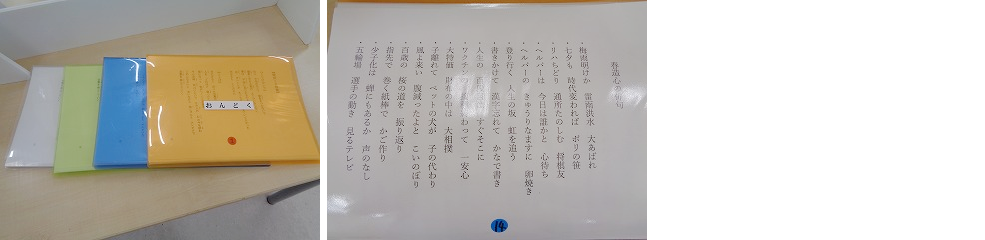 おんどく
春道心の俳句
・梅雨明けか 雷雨洪水 大あばれ
・七夕も 時代変われば ポリの笹
・リハちどり 通所たのしむ 将棋友
・ヘルパーは 今日は誰かと 心待ち
・ヘルパーの きゅうりなますに 卵焼き
・登り行く 人生の坂 虹を追う
・書きかけて 漢字忘れて かなで書き
・人生の すぐそこに
・ワクチン わって 一安心
・大特価 財布の中は 大相撲
・子離れて ペットの犬が 子の代わり
・風よ来い 腹減ったよと こいのぼり
・百歳の 桜の道を 振り返り
・指先で 巻く紙棒で かご作り
・少子化は 蝉にもあるか 声のなし
・五輪場 選手の動き 見るテレビ
14